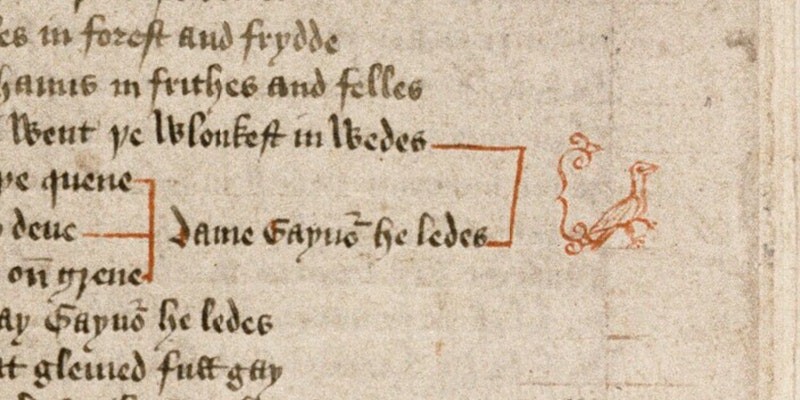 es in forest and frydde
hamis in frithes and felles
Went þe wlonkest in wedes
þe quene
deue
Dame Gaynō he ledes
on grene
ay Gaynō he ledes
at glemed full gay